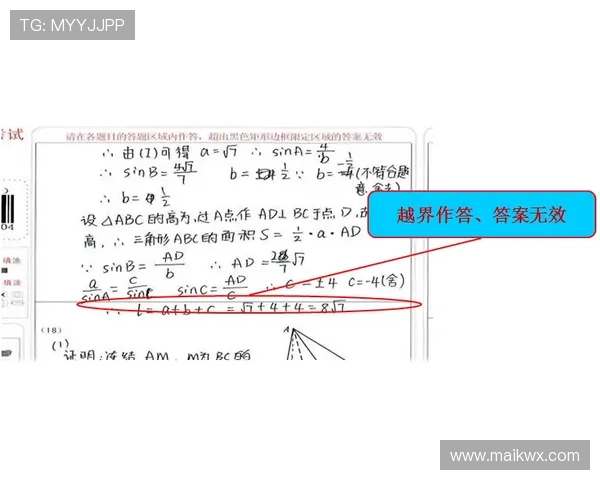 TG: MYYJJPP
考试
请在各题目的答题区域内作答，超出黑色矩形边框限定区域的答案无效
∴ 由(I)可得 a=√7 ∴ sinA=
∴ sinB= 4√7/7 b= 1/2 ∵ b= (不符合题
∴ b= 1/2
设△ABC的高为,过A点作AD⊥BC于点D,
高,∴三角形ABC的面积 S= 1/2·a·AD
越界作答、答案无效
04
∵ sinB= AD/b ∴ AD=
填涂
a/sinA = c/sinC sinC= AD/c ∴ C=±4 C=-4(舍)
∴ l=a+b+c=√7+4+4=8√7
(18)
(1)
A
证明:连结 AM, M为BC的
www.maikwx.com